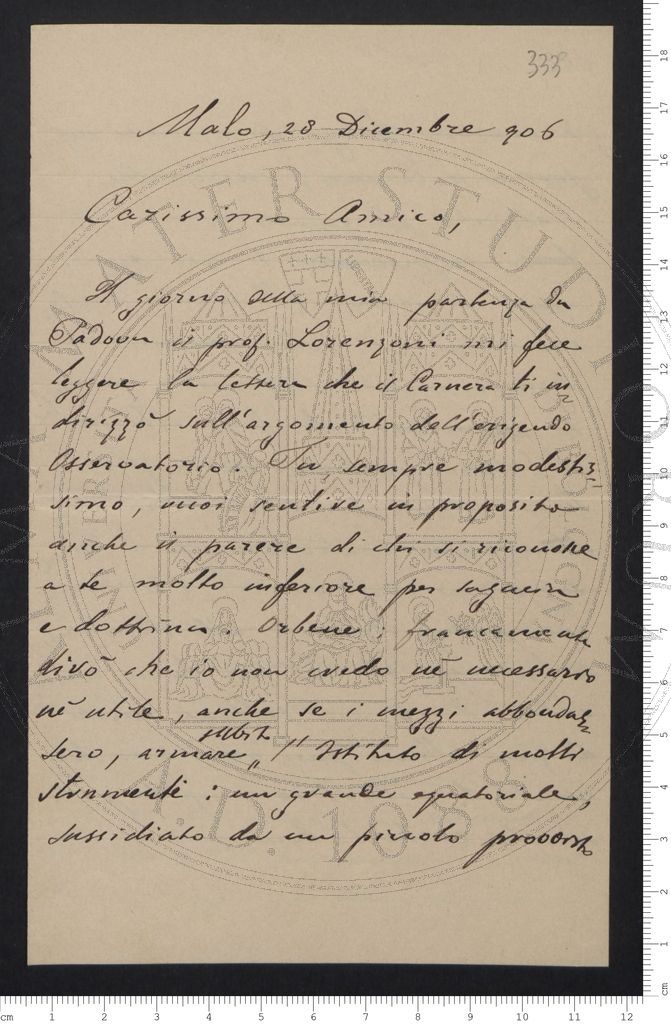 333
Malo, 28 Dicembre 906
Carissimo Amico,
Il giorno della mia partenza da
Padova il prof. Lorenzoni mi fece
leggere la lettera che il Carnera ti in=
dirizzò sull'argomento dell'erigendo
Osservatorio. Tu sempre modestis=
simo, vuoi sentire in proposito
anche il parere di chi si riconosce
a te molto inferiore per sagacia
e dottrina. Orbene; francamente
dirò che io non credo nè necessario
nè utile, anche se i mezzi abbondas=
sero, armare subito l'Istituto di molti
strumenti: un grande equatoriale,
sussidiato da un piccolo provvisto
ALMA MATER STUDIORUM
A.D. 1088